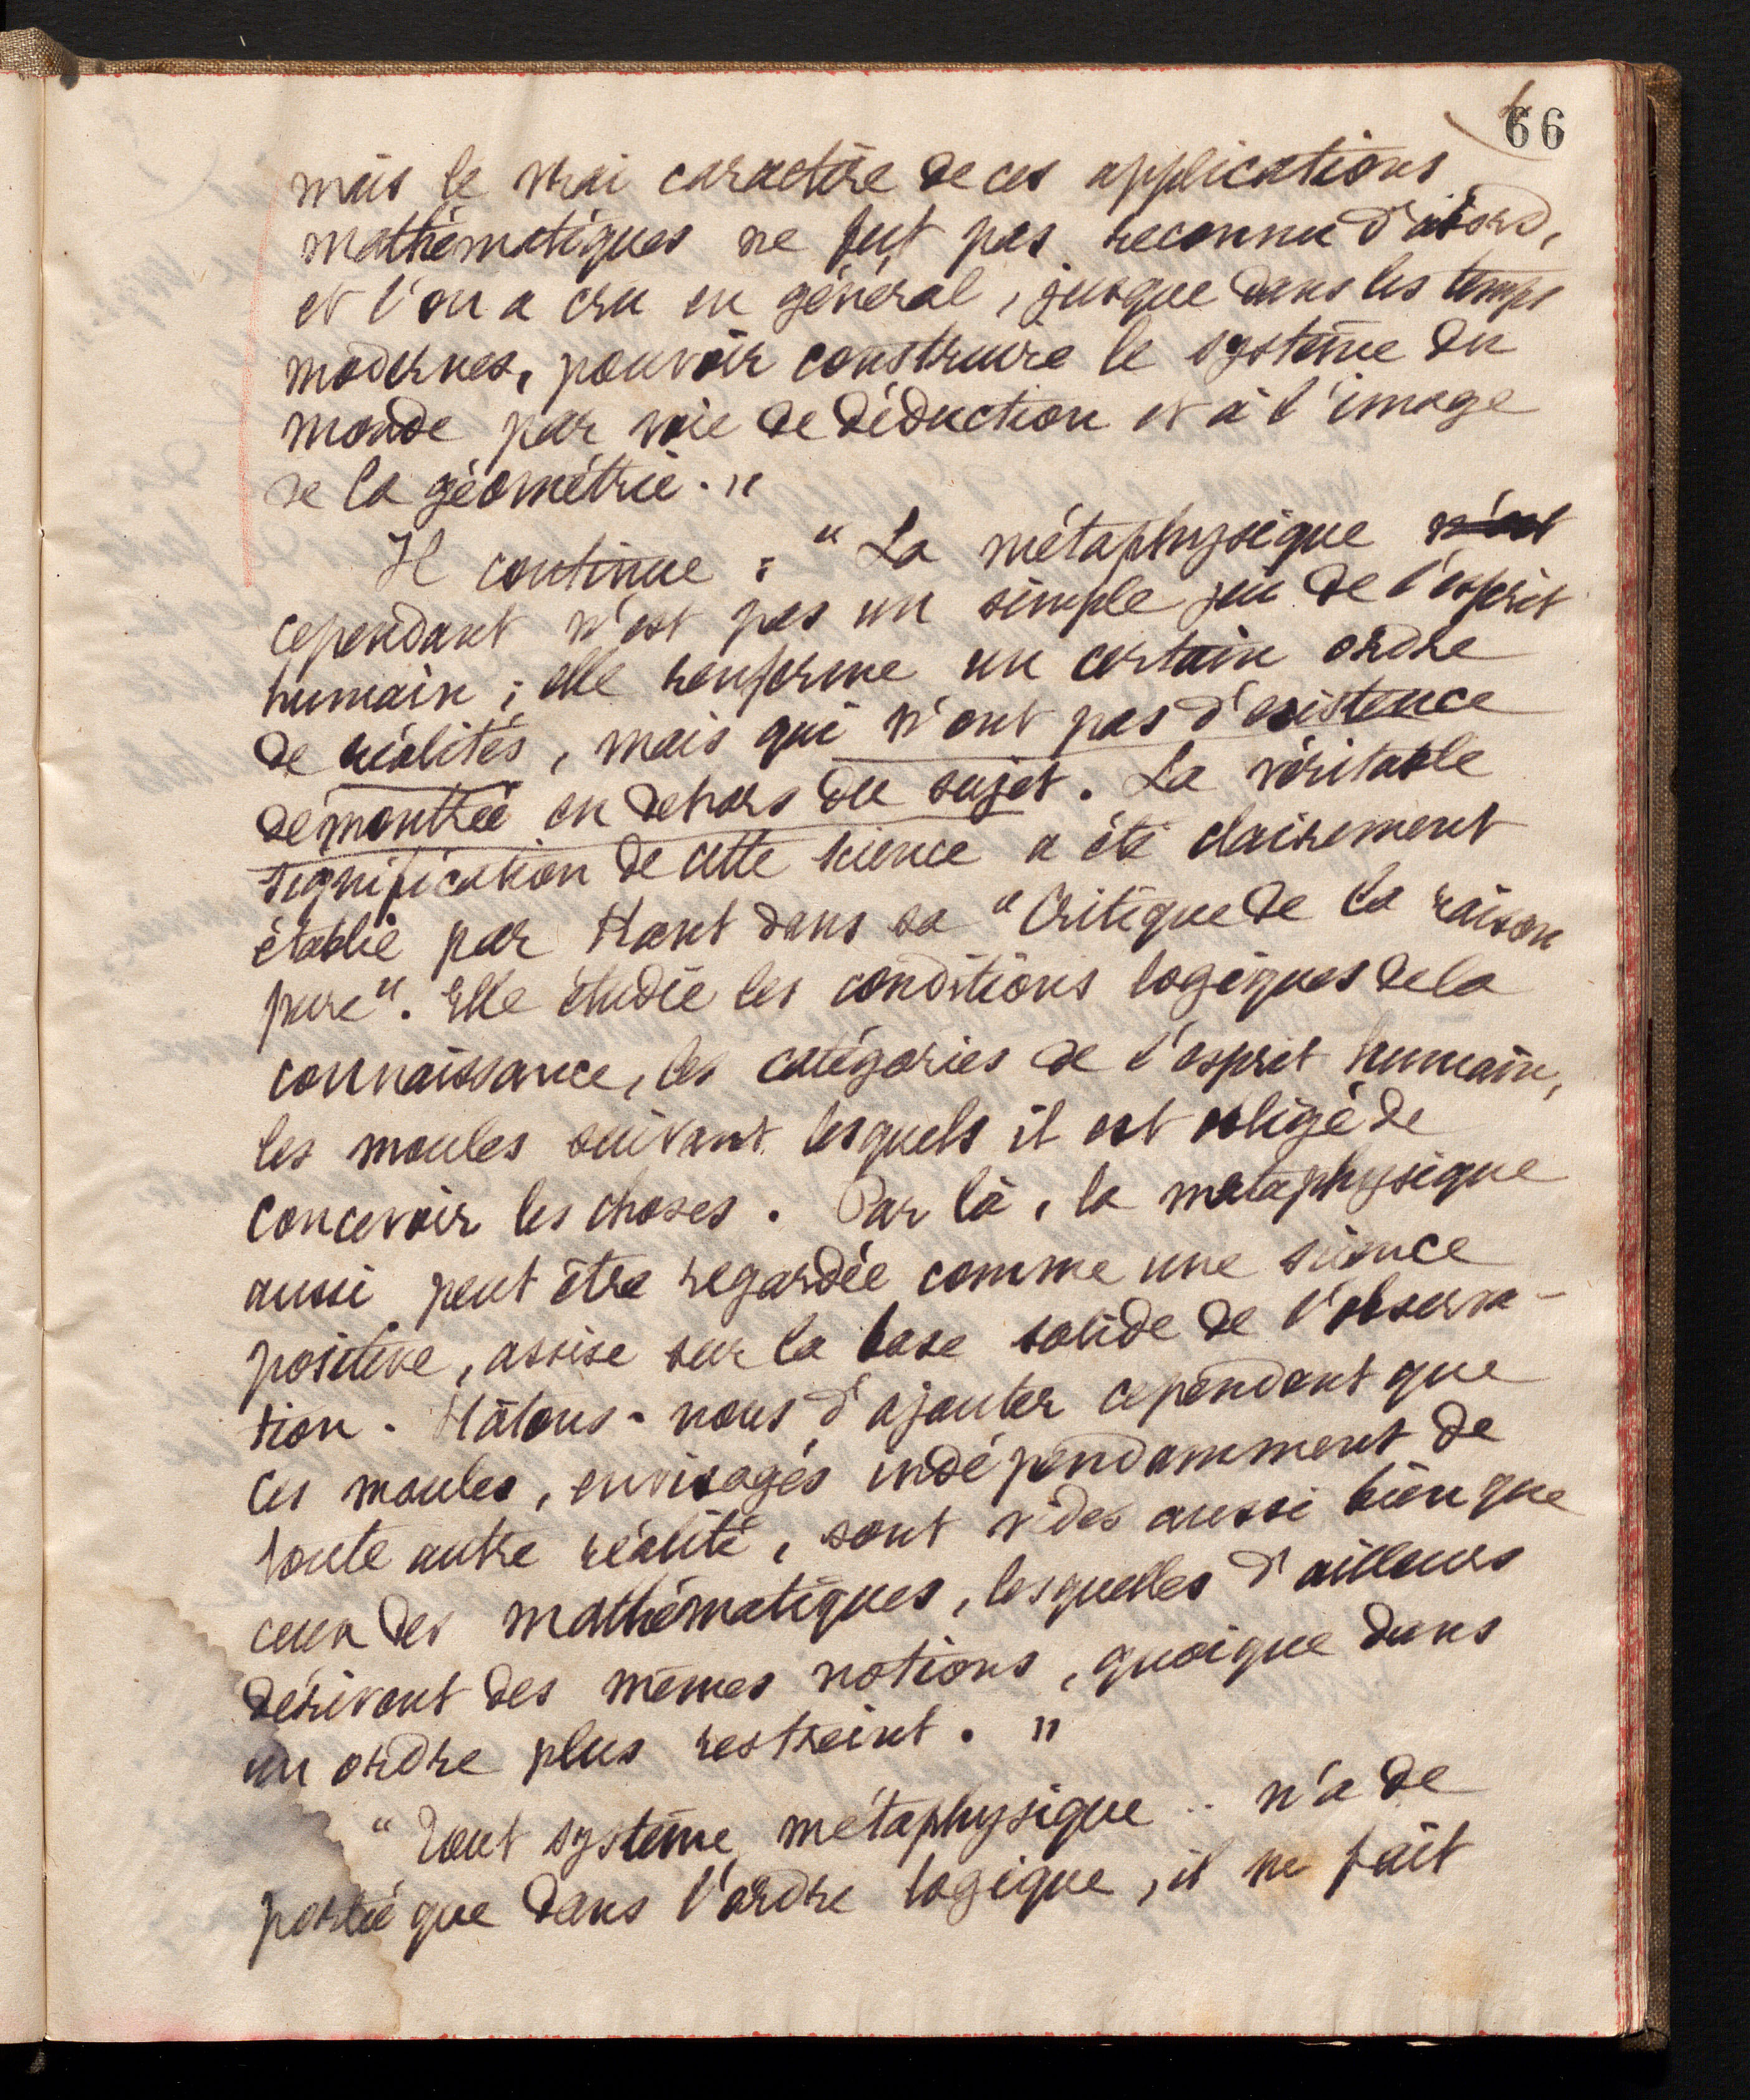 66
mais le vrai caractère de ces applications
mathématiques ne fut pas reconnu d'abord,
et l'on a cru en général, jusque dans les temps
modernes, pouvoir construire le système du
monde par voie de déduction et à l'image
de la géométrie. "
Il continue : " La métaphysique n'est
cependant n'est pas un simple jeu de l'esprit
humain ; elle renferme un certain ordre
de réalités, mais qui n'ont pas d'existence
démontrée en dehors du sujet. La véritable
signification de cette science a été clairement
établie par Kant dans sa " Critique de la raison
pure ". Elle étudie les conditions logiques de la
connaissance, les catégories de l'esprit humain,
les moules suivant lesquels il est obligé de
concevoir les choses. Par là, la métaphysique
aussi peut être regardée comme une science
positive, assise sur la base solide de l'observa-
tion. Hâtons-nous d'ajouter cependant que
ces moules, envisagés indépendamment de
toute autre réalité, sont vides aussi bien que
ceux des mathématiques, lesquelles d'ailleurs
dérivent des mêmes notions, quoique dans
un ordre plus restreint. "
" Tout système métaphysique .. n'a de
portée que dans l'ordre logique, il ne fait